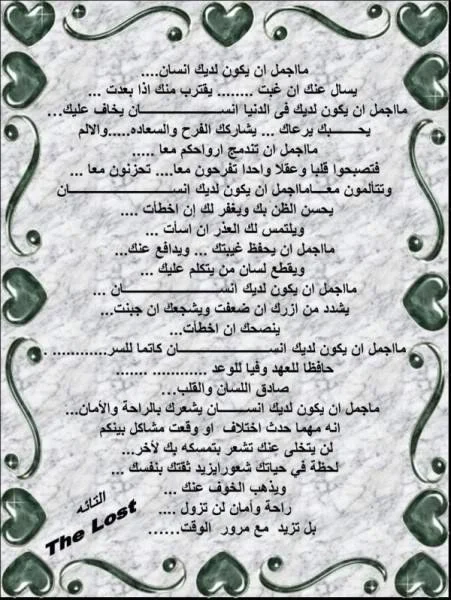 مااجمل ان يكون لديك انسان....
يسال عنك ان غبت ........ يقترب منك اذا بعدت ...
مااجمل ان يكون لديك فى الدنيا انســــــــــــان يخاف عليك...
يحــــــبك يرعاك ... يشاركك الفرح والسعاده.....والالم
مااجمل ان تندمج ارواحكم معا .....
فتصبحوا قلبا وعقلا واحدا تفرحون معا.... تحزنون معا ...
وتتألمون معـــامااجمل ان يكون لديك انســـــــــــــان
يحسن الظن بك ويغفر لك إن اخطأت ....
ويلتمس لك العذر ان اسأت ...
مااجمل ان يحفظ غيبتك ... ويدافع عنك...
ويقطع لسان من يتكلم عليك ...
مااجمل ان يكون لديك انســـــــــــــان ...
يشدد من ازرك ان ضعفت ويشجعك ان جبنت...
ينصحك ان اخطأت...
مااجمل ان يكون لديك انســــــــــــــان كاتما للسر............ .
حافظا للعهد وفيا للوعد ............ .......
صادق اللسان والقلب...
ماجمل ان يكون لديك انســـــان يشعرك بالراحة والأمان...
انه مهما حدث اختلاف او وقعت مشاكل بينكم
لن يتخلى عنك تشعر بتمسكه بك لأخر..
لحظة في حياتك شعورايزيد ثقتك بنفسك ...
ويذهب الخوف عنك ...
راحة وأمان لن تزول ....
بل تزيد مع مرور الوقت......
التائه
The Lost